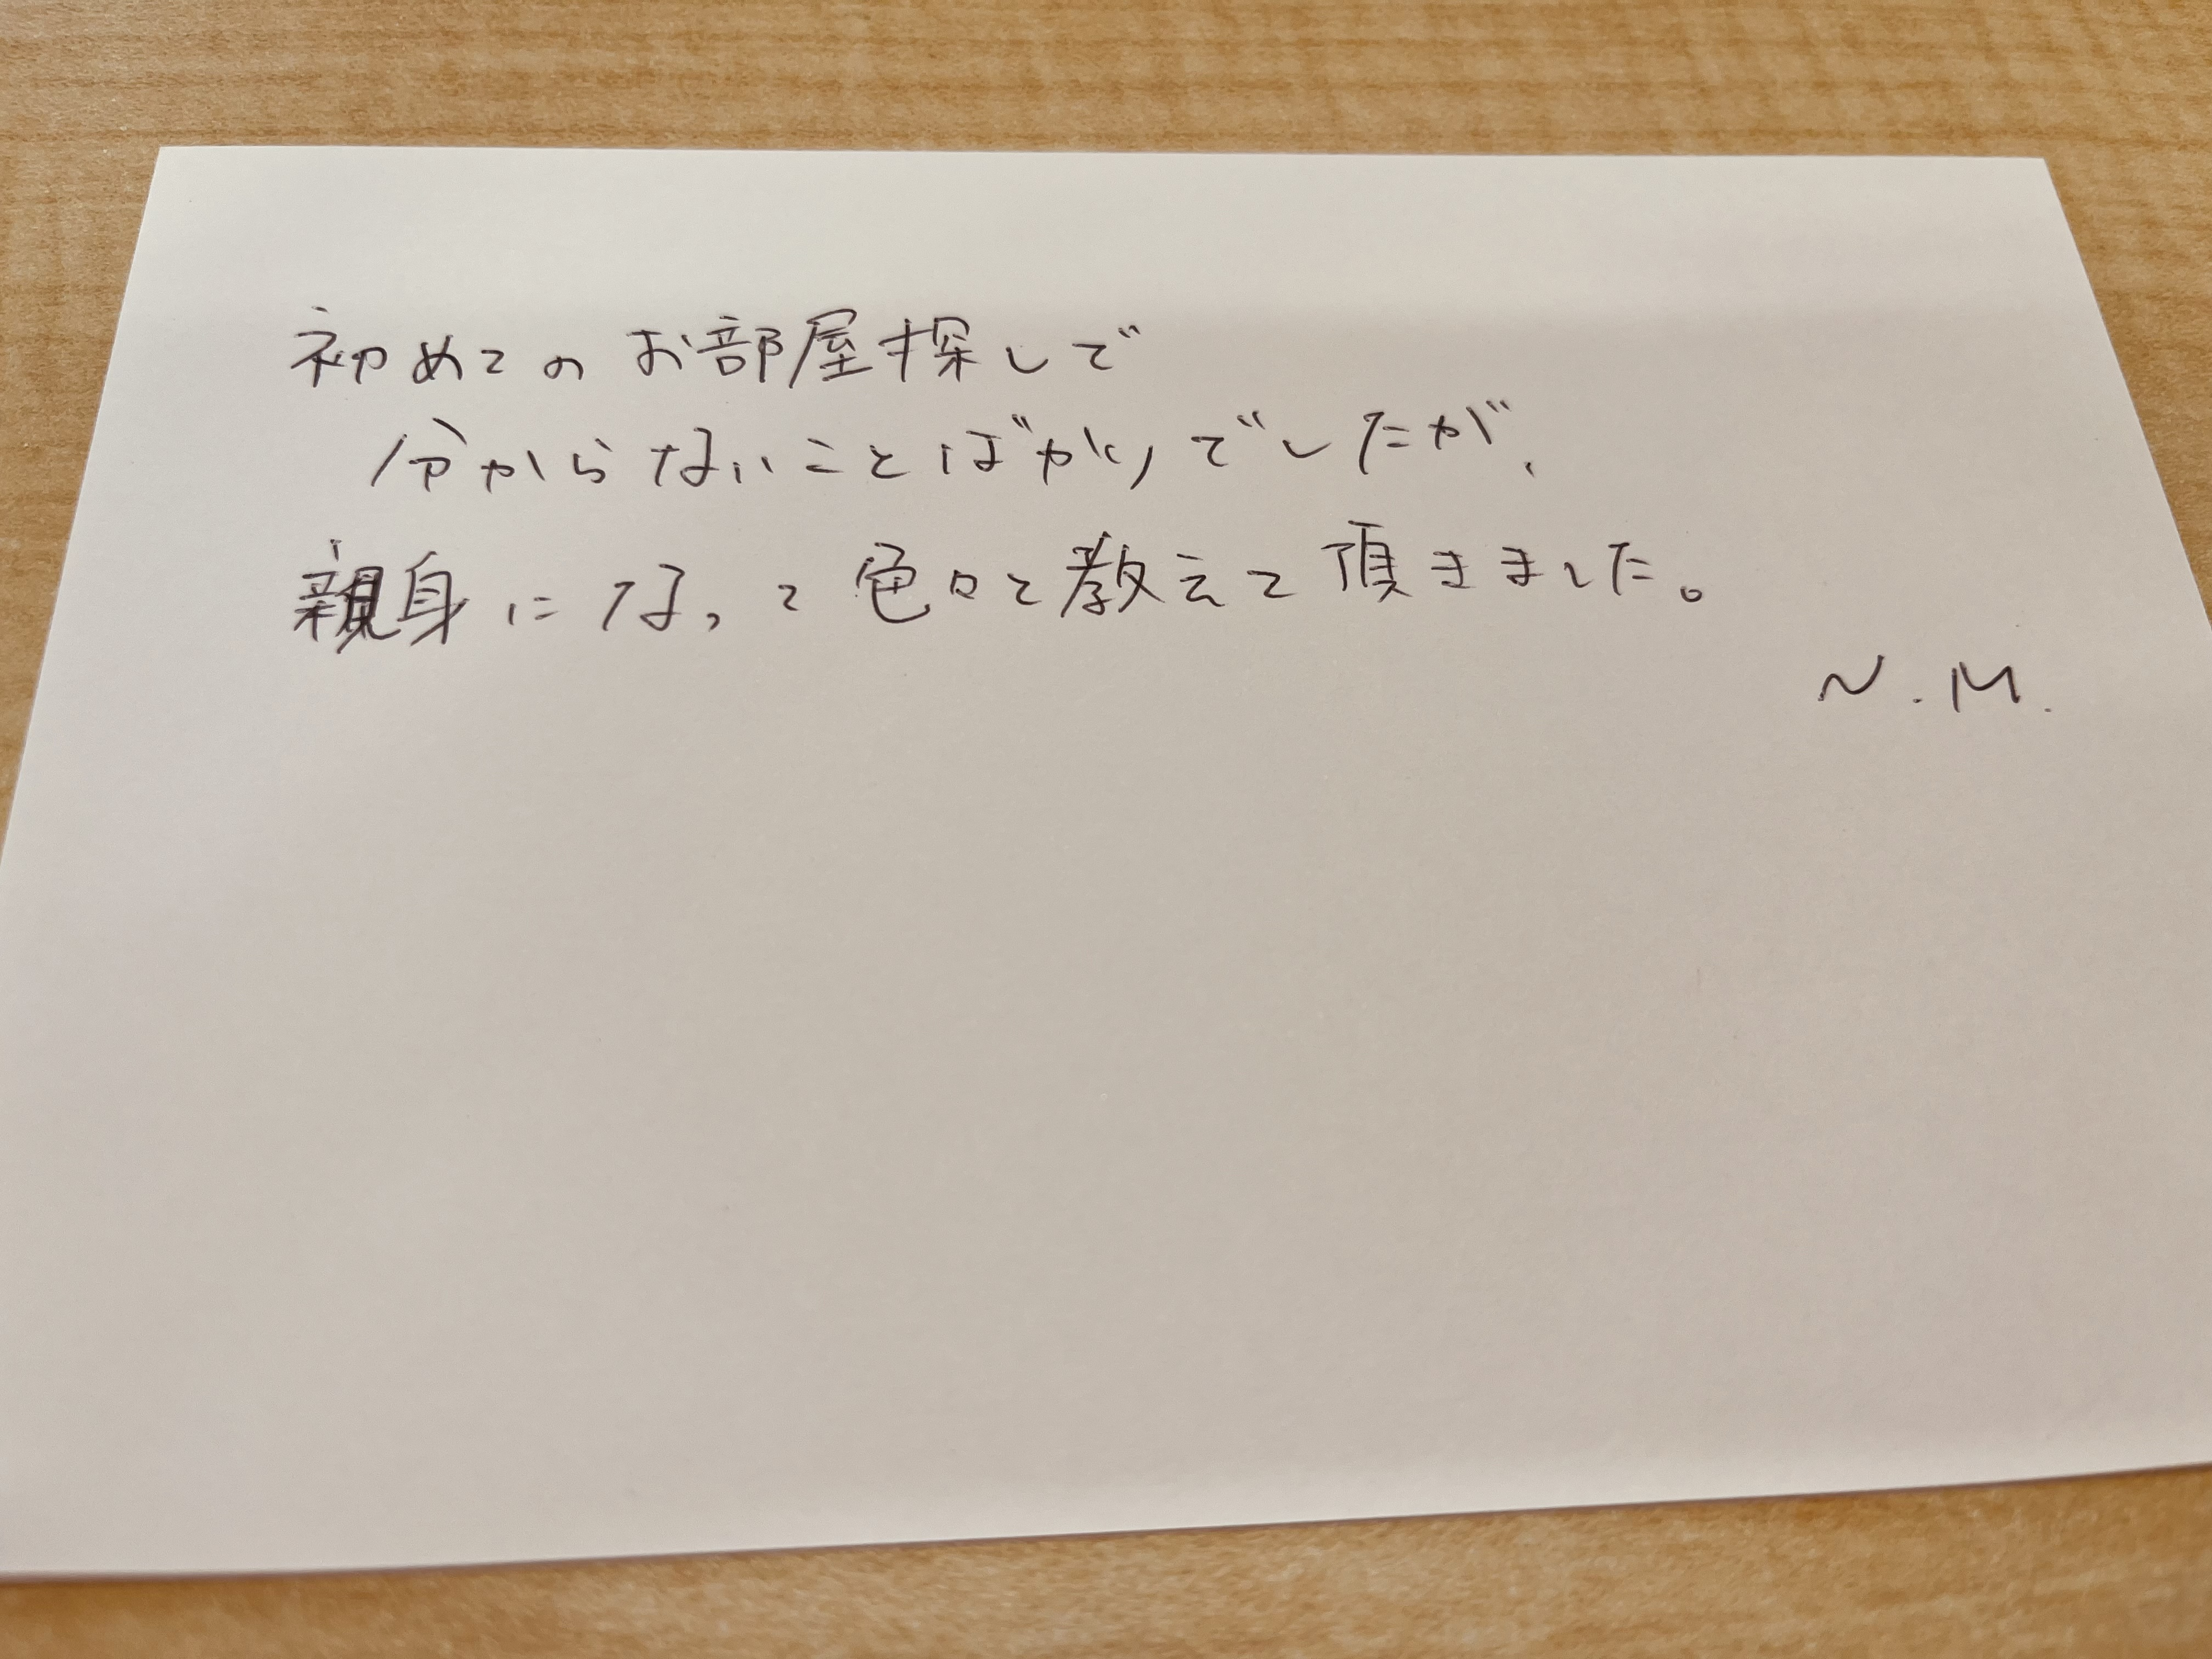 初めてのお部屋探しで
分からないことばかりでしたが、
親身になって色々と教えて頂きました。
N.M.